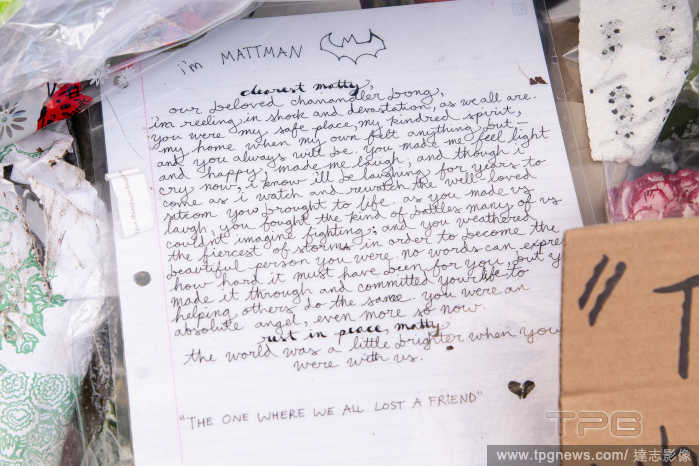 i'm MATTMAN
dearest matty,
our beloved chanandler bong,
i'm reeling, in shock and devastation, as we all are.
you were my safe place, my kindred spirit,
my home when my own felt anything but —
and you always will be. you made me feel light
and happy, made me laugh; and though i
cry now, i know i'll be laughing for years to
come as i watch and rewatch the well-loved
sitcom you brought to life. as you made us
laugh, you fought the kind of battles many of us
couldn't imagine fighting; and you weathered
the fiercest of storms in order to become the
beautiful person you were. no words can expre
how hard it must have been for you, but y
made it through and committed your life to
helping others do the same. you were an
absolute angel, even more so now.
rest in peace, matty
the world was a little brighter when you
were with us.
"THE ONE WHERE WE ALL LOST A FRIEND"
"T
TPG
www.tpgnews.com/ 達志影像